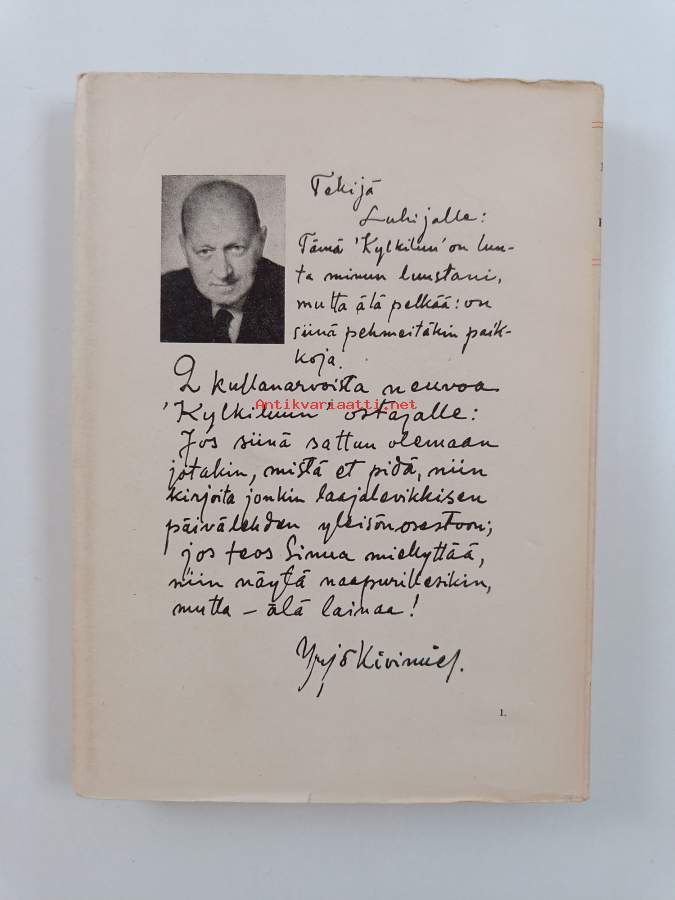 Tekijä
Lukijalle:
Tämä 'Kylkiluu' on luu-
ta minun luustani,
mutta älä pelkää: on
siinä pehmeitäkin paik-
koja.
2 kullanarvoista neuvoa
Antikvariaatti.net
'Kylkiluun' ostajalle:
Jos siinä sattuu olemaan
jotakin, mistä et pidä, niin
kirjoita jonkin laajalevikkisen
päivälehden yleisönosastoon;
jos teos Sinua miellyttää,
niin näytä naapurillesikin,
mutta – älä lainaa!
Yrjö Kivimies.
1.